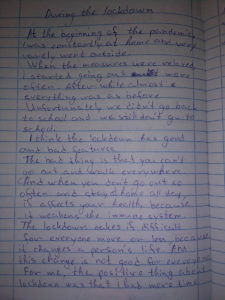 During the lockdown
At the beginning of the pandemic,
I was constantly at home and very
rarely went outside.
When the measures were relaxed,
I started going out more
often. After while almost
everything was as before.
Unfortunately we didn't go back
to school and we still don't go to
school.
I think the lockdown has good
and bad features.
The bad thing is that you can't
go out and walk everywhere.
And when you don't go out so
often and stay at home all day,
it affects your health, because
it weakens the immune system.
The lockdown makes it difficult
for everyone move on, because
it changes a person's life. And
this change is not good for everyone.
For me, the positive thing about
lockdown was that I had more time